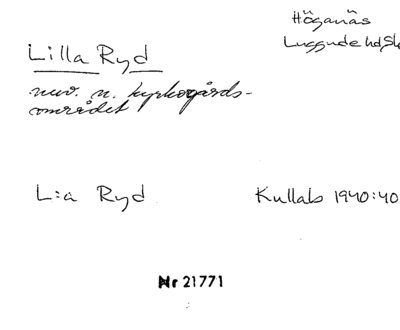 Höganäs
Luggude hd, Sk
Lilla Ryd
nuv. n. kyrkogårds-
området
L:a Ryd
Kullab 1940:40
Nr 21771